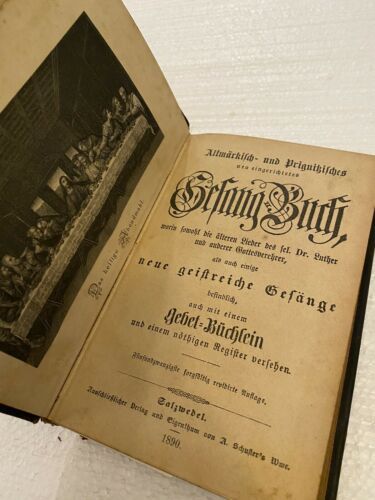 Das heilige Abendmahl.
Altmärkisch- und Prignitzisches
neu eingerichtetes
Gesang-Buch,
worin sowohl die älteren Lieder des sel. Dr. Luther
und anderer Gottesverehrer,
als auch einige
neue geistreiche Gesänge
befindlich,
auch mit einem
Gebet-Büchlein
und einem nöthigen Register versehen.
Fünfundzwanzigste sorgfältig revidirte Auflage.
Salzwedel.
Ausschließlicher Verlag und Eigenthum von A. Schuster's Wwe.
1890.